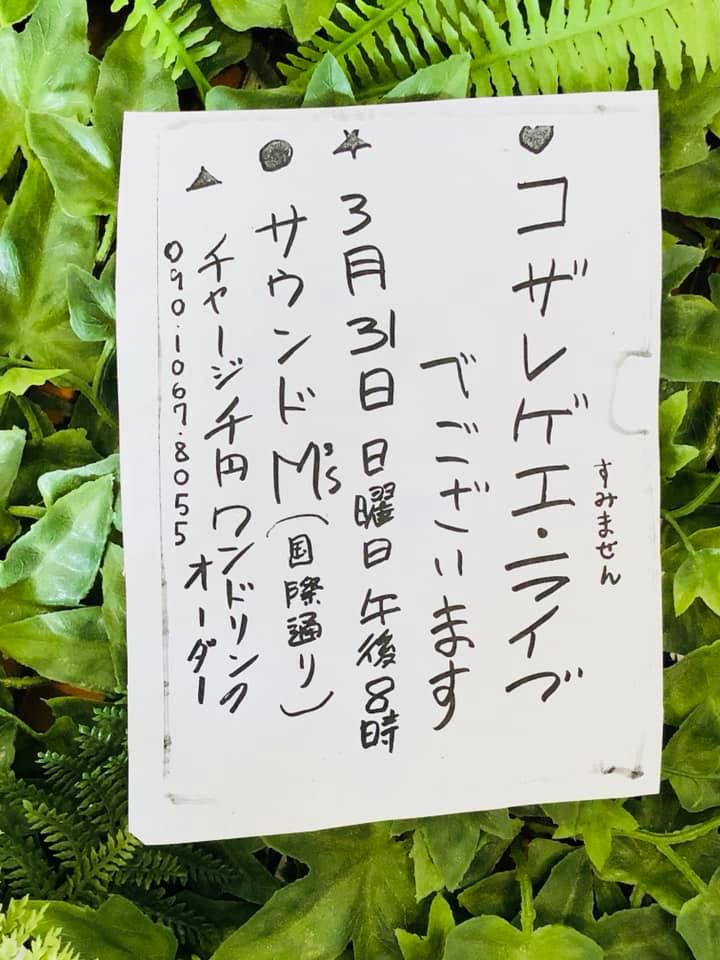 すみません
♥コザレゲエ・ライブ
でございます
★3月31日 日曜日 午後8時
●サウンド M's(国際通り)
▲チャージ千円ワンドリンク
オーダー
090.1067.8055